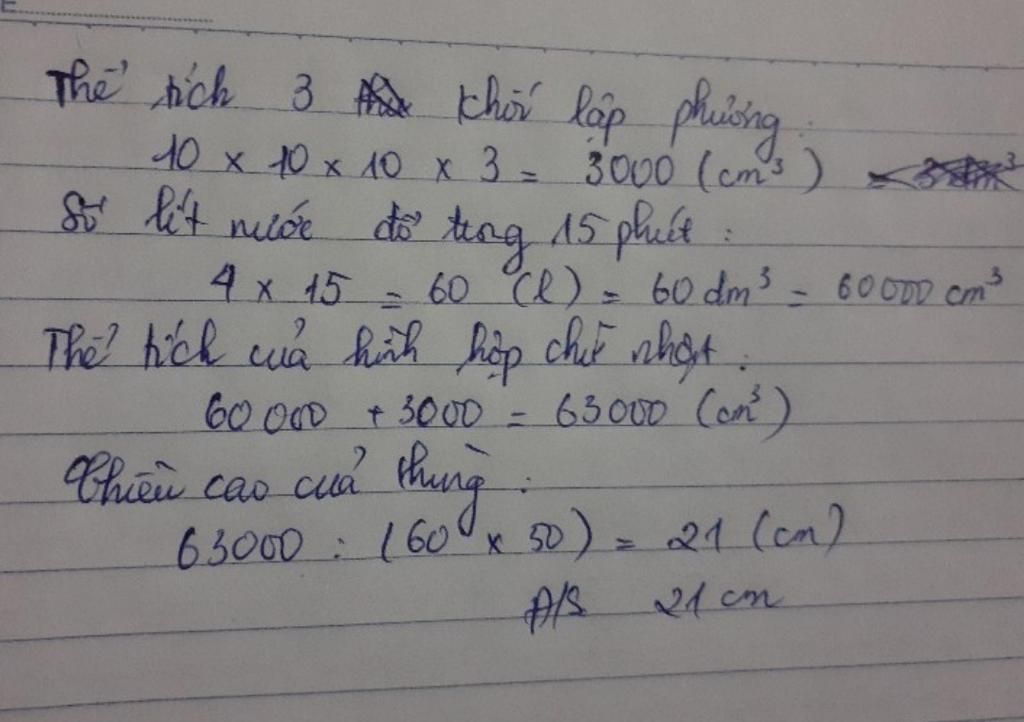 Thể tích 3 khối lập phương:
10 x 10 x 10 x 3 = 3000 (cm³)
Số lít nước đổ trong 15 phút:
4 x 15 = 60 (l) = 60 dm³ = 60000 cm³
Thể tích của hình hộp chữ nhật:
60000 + 3000 = 63000 (cm³)
Chiều cao của thùng:
63000 : (60 x 50) = 21 (cm)
Đ/S 21 cm